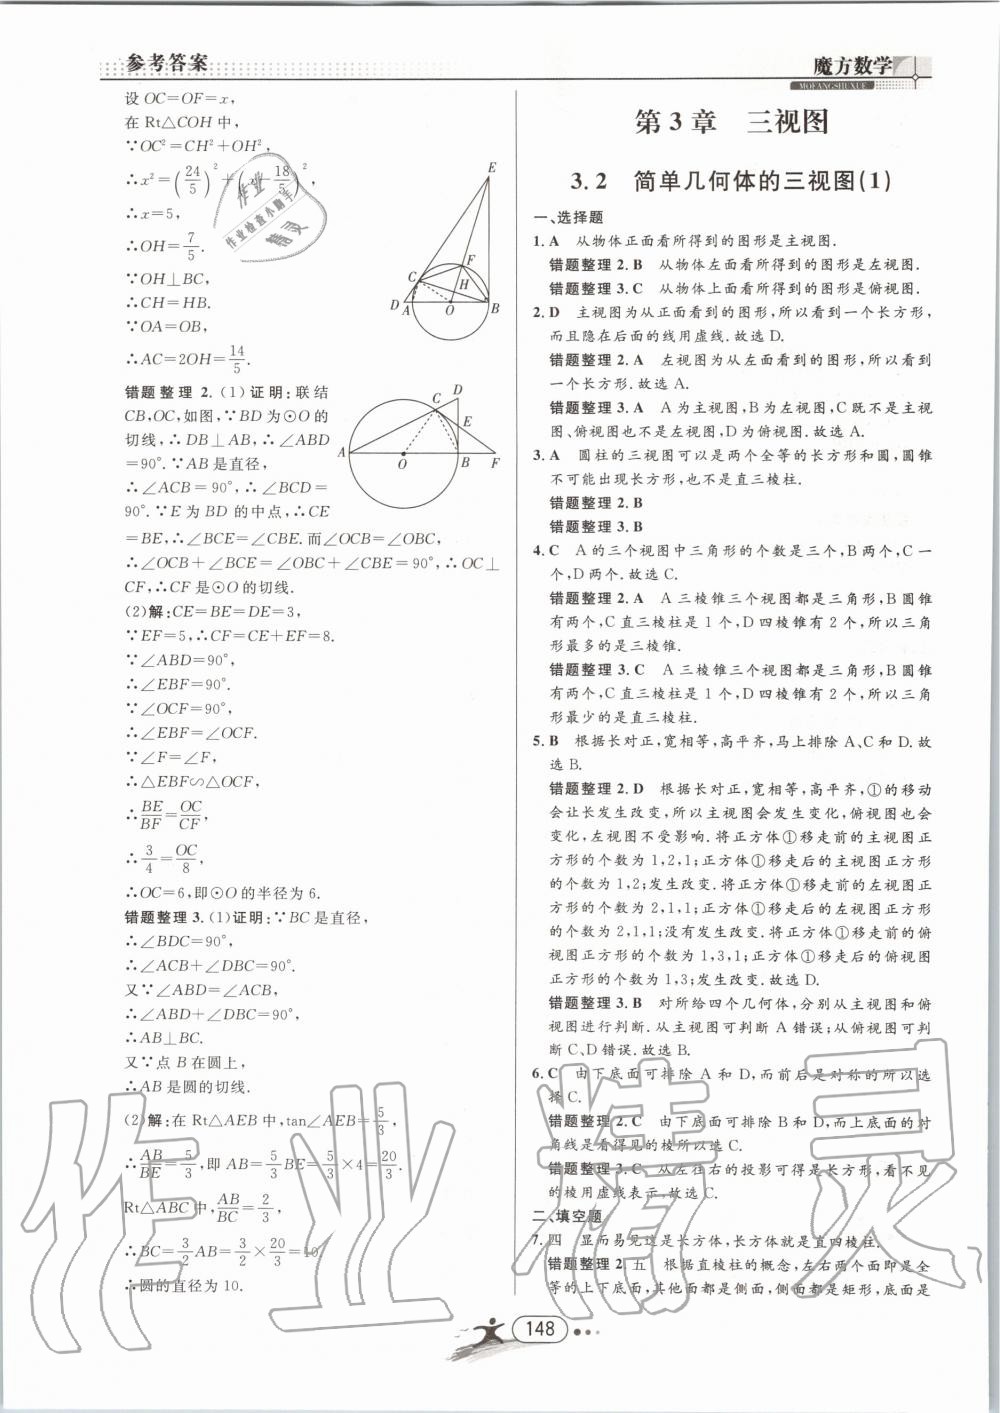 参考答案
魔方数学
MOFANGSHUXUE
设 OC=OF=x,
在 Rt△COH 中,
∵OC²=CH²+OH²,
∴x²=(24/5)²+(x-18/5)²,
∴x=5,
∴OH=7/5.
∵OH⊥BC,
∴CH=HB.
∵OA=OB,
∴AC=2OH=14/5.
E
F
C
H
D
A
O
B
错题整理 2. (1)证明:联结
CB,OC,如图,∵BD 为⊙O 的
切线,∴DB⊥AB,∴∠ABD
=90°.∵AB 是直径,
∴∠ACB=90°,∴∠BCD=
90°.∵E 为 BD 的中点,∴CE
=BE,∴∠BCE=∠CBE.而∠OCB=∠OBC,
∴∠OCB+∠BCE=∠OBC+∠CBE=90°,∴OC⊥
CF,∴CF 是⊙O 的切线.
D
C
E
A
O
B
F
(2)解:CE=BE=DE=3,
∵EF=5,∴CF=CE+EF=8.
∵∠ABD=90°,
∴∠EBF=90°.
∵∠OCF=90°,
∴∠EBF=∠OCF.
∵∠F=∠F,
∴△EBF∽△OCF,
∴BE/BF=OC/CF,
∴3/4=OC/8,
∴OC=6,即⊙O 的半径为 6.
错题整理 3. (1)证明:∵BC 是直径,
∴∠BDC=90°,
∴∠ACB+∠DBC=90°.
又∵∠ABD=∠ACB,
∴∠ABD+∠DBC=90°,
∴AB⊥BC.
又∵点 B 在圆上,
∴AB 是圆的切线.
(2)解:在 Rt△AEB 中,tan∠AEB=5/3,
∴AB/BE=5/3,即 AB=5/3BE=5/3×4=20/3.
Rt△ABC 中,AB/BC=2/3,
∴BC=3/2AB=3/2×20/3=10,
∴圆的直径为 10.
第 3 章 三视图
3.2 简单几何体的三视图(1)
一、选择题
1. A 从物体正面看所得到的图形是主视图.
错题整理 2. B 从物体左面看所得到的图形是左视图.
错题整理 3. C 从物体上面看所得到的图形是俯视图.
2. D 主视图为从正面看到的图形,所以看到一个长方形,
而且隐在后面的线用虚线.故选 D.
错题整理 2. A 左视图为从左面看到的图形,所以看到
一个长方形.故选 A.
错题整理 3. A A 为主视图,B 为左视图,C 既不是主视
图、俯视图也不是左视图,D 为俯视图.故选 A.
3. A 圆柱的三视图可以是两个全等的长方形和圆,圆锥
不可能出现长方形,也不是直三棱柱.
错题整理 2. B
错题整理 3. B
4. C A 的三个视图中三角形的个数是三个,B 两个,C 一
个,D 两个.故选 C.
错题整理 2. A A 三棱锥三个视图都是三角形,B 圆锥
有两个,C 直三棱柱是 1 个,D 四棱锥有 2 个,所以三角
形最多的是三棱锥.
错题整理 3. C A 三棱锥三个视图都是三角形,B 圆锥
有两个,C 直三棱柱是 1 个,D 四棱锥有 2 个,所以三角
形最少的是直三棱柱.
5. B 根据长对正,宽相等,高平齐,马上排除 A、C 和 D.故
选 B.
错题整理 2. D 根据长对正,宽相等,高平齐,①的移动
会让长发生改变,所以主视图会发生变化,俯视图也会
变化,左视图不受影响.将正方体①移走前的主视图正
方形的个数为 1,2,1;正方体①移走后的主视图正方形
的个数为 1,2;发生改变.将正方体①移走前的左视图正
方形的个数为 2,1,1;正方体①移走后的左视图正方形
的个数为 2,1,1;没有发生改变.将正方体①移走前的俯
视图正方形的个数为 1,3,1;正方体①移走后的俯视图
正方形的个数为 1,3;发生改变.故选 D.
错题整理 3. B 对所给四个几何体,分别从主视图和俯
视图进行判断.从主视图可判断 A 错误;从俯视图可判
断 C、D 错误.故选 B.
6. C 由下底面可排除 A 和 D,而前后是对称的所以选
择 C.
错题整理 2. C 由下底面可排除 B 和 D,而上底面的对
角线是看得见的棱所以选 C.
错题整理 3. C 从左往右的投影可得是长方形,看不见
的棱用虚线表示,故选 C.
二、填空题
7. 四 显而易见这是长方体,长方体就是直四棱柱.
错题整理 2. 五 根据直棱柱的概念,左右两个面即是全
等的上下底面,其他面都是侧面,侧面都是矩形,底面是
148
作业精灵
作业检查小助手